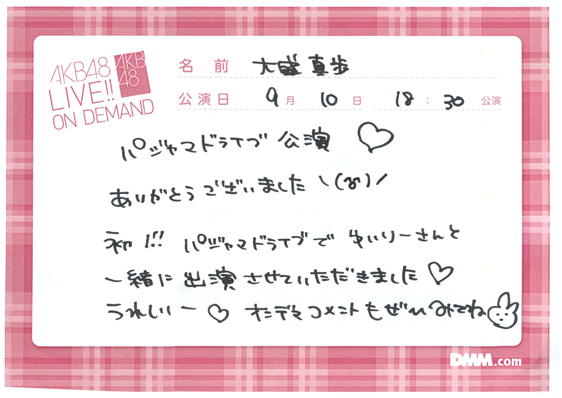 AKB48
LIVE!!
ON DEMAND
AKB
48
名前 大盛真歩
公演日 9月10日 18:30公演
パジャマドライブ 公演♡
ありがとうございました \(^o^)/
初!!! パジャマドライブで ゆいりーさんと
一緒に出演させていただきました♡
うれしいー♡ オンデマコメントもぜひみてね
DMM.com